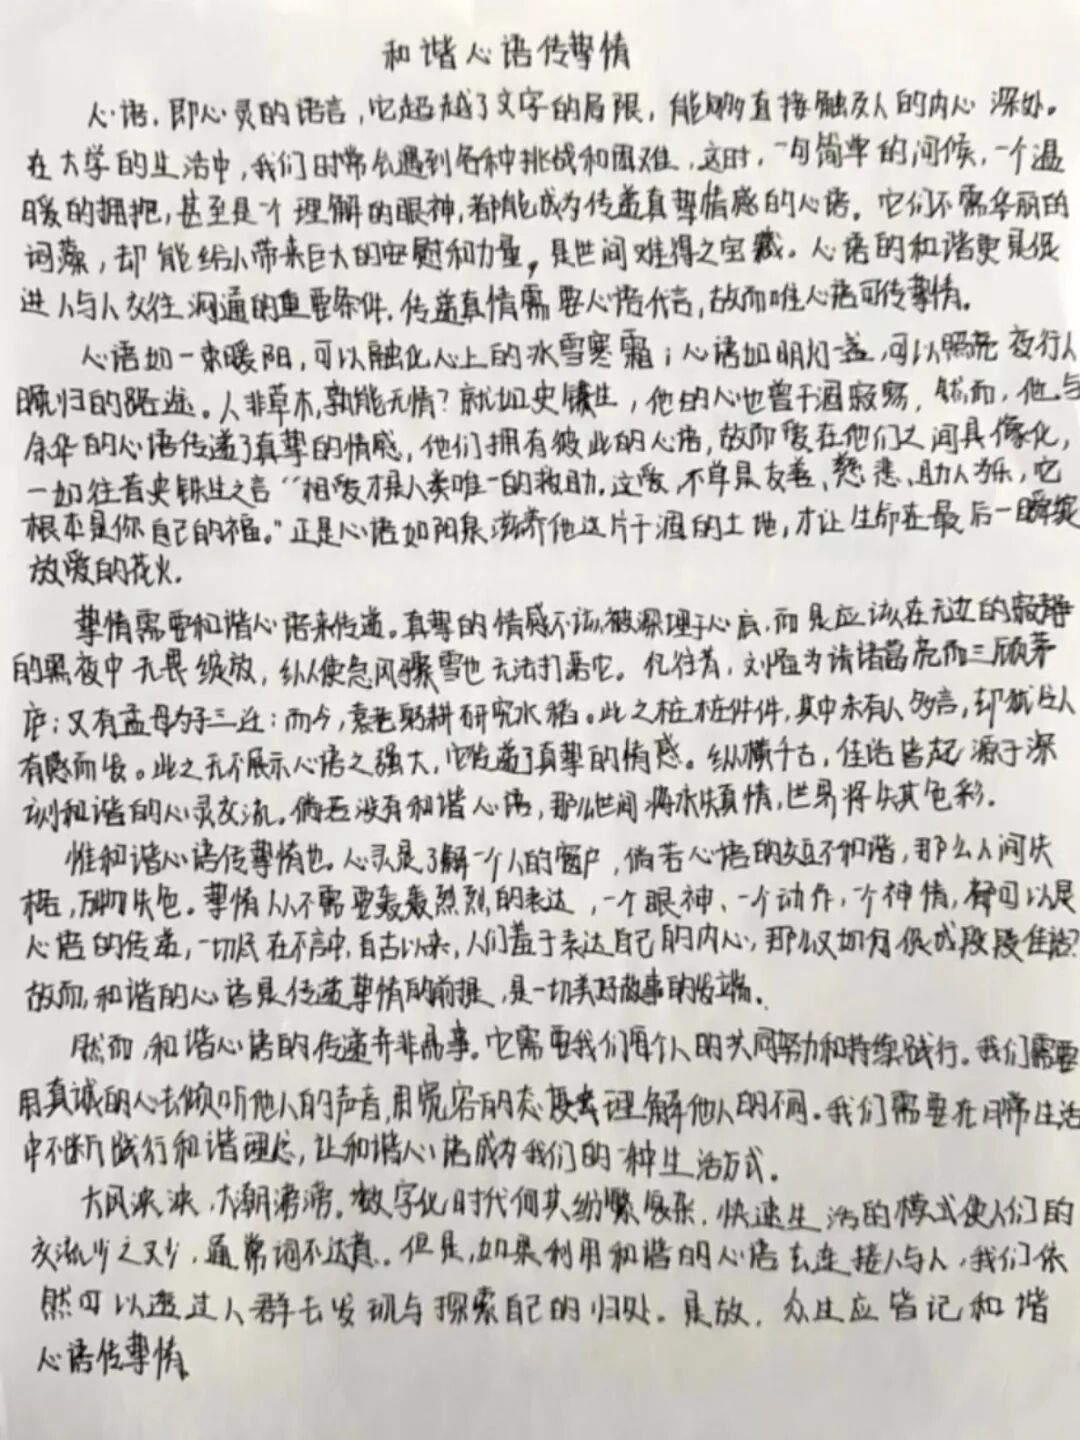 和谐心语传挚情
心语,即心灵的语言,它超越了文字的局限,能够直接触及人的内心深处。
在大学的生活中,我们时常会遇到各种挑战和困难,这时,一句简单的问候,一个温
暖的拥抱,甚至是一个理解的眼神,都能成为传递真挚情感的心语。它们不需华丽的
词藻,却能给人带来巨大的安慰和力量,是世间难得之宝藏。心语的和谐更是促
进人与人交往沟通的重要条件,传递真情需要心语代言,故而唯心语可传挚情。
心语如一束暖阳,可以融化心上的冰雪寒霜;心语如明灯一盏,可以照亮夜行人
晚归的路途。人非草木,孰能无情?就如史铁生,他的心也曾干涸寂寥,然而,他与
余华的心语传递了真挚的情感,他们拥有彼此的心语,故而爱在他们之间具像化,
一如往昔史铁生之言“相爱才是人类唯一的救助。这爱,不单是友善、慈悲、助人为乐,它
根本是你自己的福。”正是心语如阳泉滋养他这片干涸的土地,才让生命在最后一瞬绽
放爱的花火。
挚情需要和谐心语来传递。真挚的情感不该被深埋于心底,而是应该在无边的寂静
的黑夜中无畏绽放,纵使急风骤雪也无法打落它。忆往昔,刘备为请诸葛亮而三顾茅
庐;又有孟母为子三迁;而今,袁老躬耕研究水稻。此之桩桩件件,其中未有人多言,却让人
有感而发。此之无不展示心语之强大,它传递了真挚的情感。纵横千古,佳话皆起源于深
刻和谐的心灵交流。倘若没有和谐心语,那么世间将永失真情,世界将失其色彩。
惟和谐心语传挚情也。心灵是了解一个人的窗户,倘若心语的交互不和谐,那么人间失
格,万物失色。挚情从不需要轰轰烈烈的表达,一个眼神、一个动作,一个神情,都可以是
心语的传递,一切尽在不言中,自古以来,人们羞于表达自己的内心,那么又如何促成段段佳话?
故而,和谐的心语是传递挚情的前提,是一切美好故事的发端。
然而,和谐心语的传递并非易事。它需要我们每个人的共同努力和持续践行。我们需要
用真诚的心去倾听他人的声音,用宽容的态度去理解他人的不同。我们需要在日常生活
中不断践行和谐理念,让和谐心语成为我们的一种生活方式。
大风泱泱,大潮滂滂。数字化时代何其纷繁复杂,快速生活的模式使人们的
交流少之又少,通常词不达意。但是,如果利用和谐的心语去连接人与人,我们依
然可以透过人群去发现与探索自己的归处。是故,众生应皆记和谐
心语传挚情。